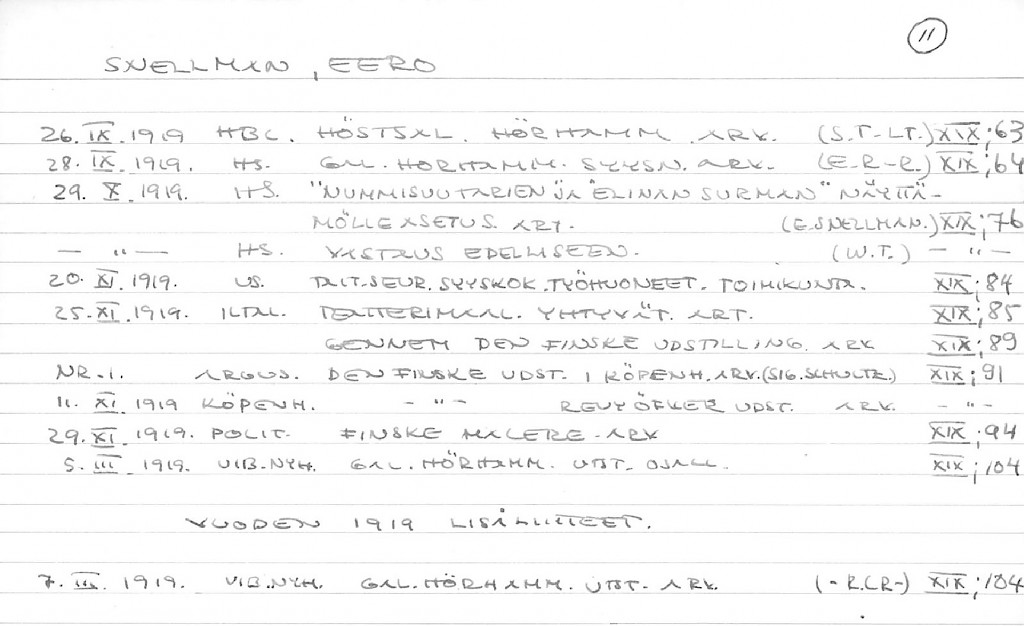 11
SNELLMAN, EERO
26. IX. 1919 HBL. HÖSTSAL. HÖRHAMM. ARK. (S.T-LT.) XIX; 63
28. IX. 1919. HS. GAL. HÖRHAMM. SYYSN. ARK. (E-R-R.) XIX; 64
29. X. 1919. HS. "NUMMISUUTARIEN" JA "ELINAN SURMAN" NÄYTTÄ-
MÖLLE ASETUS. ART. (E.SNELLMAN.) XIX; 76
— " — HS. VASTAUS EDELLISEEN. (W.T.) — " —
20. XI. 1919. US. TAIT.SEUR. SYYSKOK. TYÖHUONEET. TOIMIKUNTA. XIX; 84
25. XI. 1919. ILTAL. TEATTERIMAAL. YHTYVÄT. ART. XIX; 85
GENNEM DEN FINSKE UDSTILLING. ARK XIX; 89
NR. 1. ARGUS. DEN FINSKE UDST. I KÖPENH. ARK. (SIG. SCHULTZ.) XIX; 91
11. XI. 1919 KÖPENH. - " - REVY ÖFVER UDST. ARK. - " -
29. XI. 1919. POLIT. FINSKE MALERE - ARK XIX; 94
5. III. 1919. VIB.NYH. GAL. HÖRHAMM. UTST. OSALL. XIX; 104
VUODEN 1919 LISÄLIITTEET.
7. III. 1919. VIB.NYH. GAL. HÖRHAMM. UTST. ARK. (-R.CR-) XIX; 104